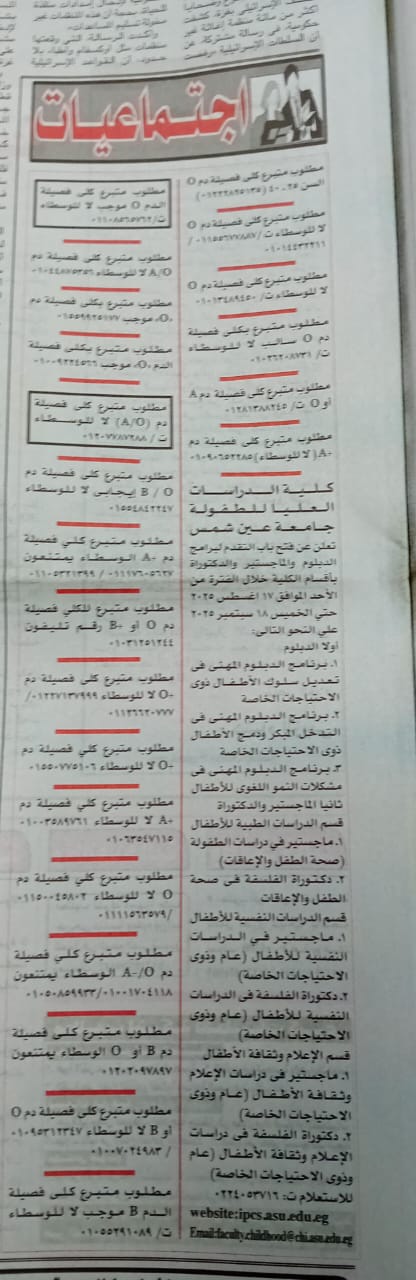 اجتماعيات
مطلوب متبرع كلى فصيلة دم O
السن ٢٥-٤٠ (٠١٢٢٢٨٢٥١٣٥)
مطلوب متبرع كلى فصيلة دم O
لا للوسطاء ت/ ٠١١٥٥٦٧٧٨٨٧ /
٠١٠١٤٤٣٢٢١١
مطلوب متبرع كلى فصيلة دم O
لا للوسطاء ت/ ٠١٠١٣٤٨٩٤٥٠
مطلوب متبرع بكلى فصيلة
دم O سالب لا للوسطاء
ت/ ٠١٠٢٦٢٠٨٧٣١
مطلوب متبرع كلى فصيلة دم A
أو O ت/ ٠١٢٨١٣٨٨٢٤٥
مطلوب متبرع كلى فصيلة دم
A+ (لا للوسطاء) ٠١٠٩٠٦٥٢٢٨٥
كلية الدراسات
العليا للطفولة
جامعة عين شمس
تعلن عن فتح باب التقدم لبرامج
الدبلوم والماجستير والدكتوراة
بأقسام الكلية خلال الفترة من
الأحد الموافق ١٧ اغسطس ٢٠٢٥
حتي الخميس ١٨ سبتمبر ٢٠٢٥
علي النحو التالى:
أولا الدبلوم
١. برنامج الدبلوم المهنى فى
تعديل سلوك الأطفال ذوى
الاحتياجات الخاصة
٢. برنامج الدبلوم المهنى فى
التدخل المبكر ودمج الأطفال
ذوى الاحتياجات الخاصة
٣. برنامج الدبلوم المهنى فى
مشكلات النمو اللغوى للأطفال
ثانيا الماجستير والدكتوراة
قسم الدراسات الطبية للأطفال
١. ماجستير في دراسات الطفولة
(صحة الطفل والإعاقات)
٢. دكتوراة الفلسفة فى صحة
الطفل والإعاقات
قسم الدراسات النفسية للأطفال
١. ماجستير في الدراسات
النفسية للأطفال (عام وذوى
الاحتياجات الخاصة)
٢. دكتوراة الفلسفة فى الدراسات
النفسية للأطفال (عام وذوى
الاحتياجات الخاصة)
قسم الإعلام وثقافة الأطفال
١. ماجستير فى دراسات الإعلام
وثقافة الأطفال (عام وذوى
الاحتياجات الخاصة)
٢. دكتوراة الفلسفة فى دراسات
الإعلام وثقافة الأطفال (عام
وذوى الاحتياجات الخاصة)
للاستعلام ت: ٠٢٢٤٠٥٣٧١٦
website:ipcs.asu.edu.eg
Email:faculty.childhood@chi.asu.edu.eg
مطلوب متبرع كلى فصيلة
الدم O موجب لا للوسطاء
ت/ ٠١١٠٨٥٦٥٧٦٢
مطلوب متبرع كلى فصيلة دم
A/O لا للوسطاء ٠١٠٤٤٨٧٥٣٥٦
مطلوب متبرع بكلى فصيلة دم
«O» موجب ٠١٥٥٩٩٢٥١٧٧
مطلوب متبرع بكلى فصيلة
الدم «O» موجب ٠١٠٠٩٢٢٤٥٦٦
مطلوب متبرع كلى فصيلة
دم (A/O) لا للوسطاء
ت/ ٠١٢٠٧٧٨٧٢٨٨
مطلوب متبرع كلى فصيلة دم
B / O إيجابى لا للوسطاء
٠١٥٥٤٨٤٢٢٤٧
مطلوب متبرع كلي فصيلة
دم A+ الوسطاء يمتنعون
٠١١١٧٦٠٥٦٢٧ / ٠١١٠٥٣٢١٣٩٩
مطلوب متبرع للكلي فصيلة
دم O أو B+ رقم تليفون
٠١٠٣١٢٥١٢٤٤
مطلوب متبرع كلي فصيلة دم
O+ لا للوسطاء ٠١٢٢٧١٣٧٩٩٩/
٠١١٢٦٦٢٠٧٧٧
مطلوب متبرع كلي فصيلة دم
O+ لا للوسطاء ٠١٥٥٠٧٧٥١٠٦
مطلوب متبرع كلي فصيلة دم
A+ لا للوسطاء ٠١٠٠٣٥٨٩٧٦١
٠١٠٦٣٥٤٧١١٥
مطلوب متبرع كلي فصيلة دم
O لا للوسطاء ٠١١٥٠٠٤٥٨٠٢
/٠١١١١٥٦٣٥٧٩
مطلوب متبرع كلى فصيلة
دم A-/O الوسطاء يمتنعون
٠١٠٠١٧٠٤١١٨/٠١٠٥٠٨٥٩٩٣٣
مطلوب متبرع كلى فصيلة
دم B أو O الوسطاء يمتنعون
٠١٢٠٢٠٩٧٨٩٧
مطلوب متبرع كلى فصيلة دم O
أو B لا للوسطاء ٠١٠٩٥٣١٢٣٤٧
/ ٠١٠٠٧٠٢٤٩٨٣
مطلوب متبرع كلى فصيلة
الدم B موجب لا للوسطاء
ت/ ٠١٠٥٥٢٩١٠٨٩